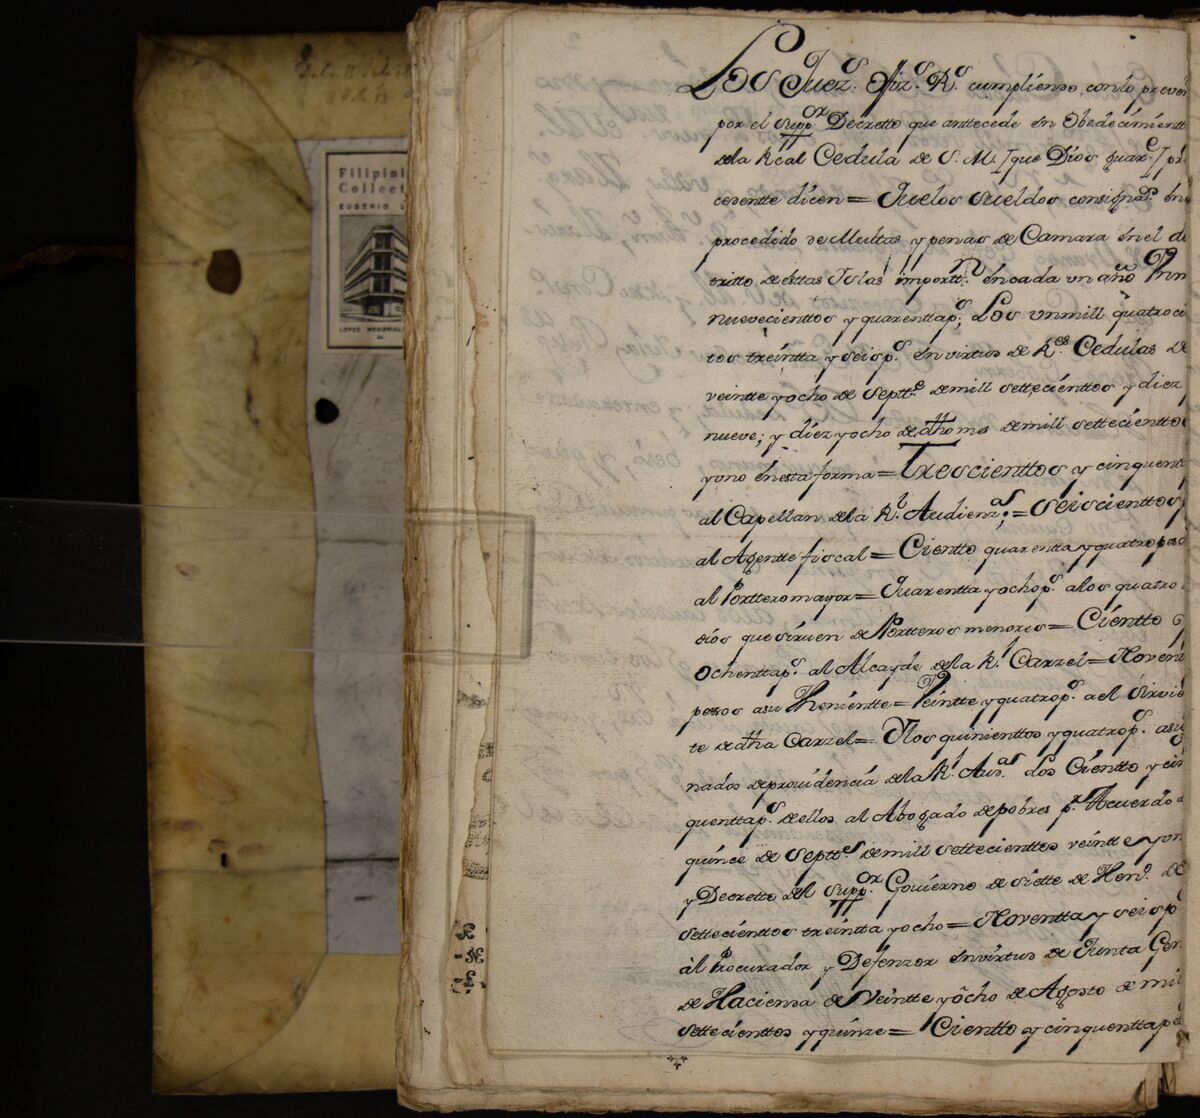 Filipini
Collect
EUGENIO L
LOPEZ MEMORIAL
Los Juezs. Ofizs. Rs. cumpliendo con lo preve
por el Suppor. Decretto que anttecede en Obedecimientt
dela Real Cedula de S. M. [que Dios guare.] pre
cedentte dicen= Que los sueldos consignados. en
procedido de Multas y penas de Camara en el dis
tritto de esttas Yslas importtn. en cada un año Un m
nuevecienttos y quarentta ps; Los un mill quatrocie
tos treintta y seis ps. en virtud de Res. Cedulas de
veintte y ocho de Septte. de mill settecienttos y diez
nueve; y diez y ocho de dho mes de mill settecienttos
y uno en esta forma= Trescienttos y cinquent
al Capellan dela Rl. Audienas.;= seiscienttos
al Agentte fiscal= Cientto quarentta y quatro pesos
al Portteromayor= Quarentta y ocho ps. alos quatro
dios que sirven de Portteros menores= Cientto y
Ochentta ps. al Alcayde dela Rl. Carzel= Novent
pesos asu Thenientte= Veintte y quatro ps. a el Sirvie
te de dha Carzel= Y los quinienttos y quatro ps. asig
nados de providencia dela Rl. Audas. dos Cientto y cin
quentta ps. de ellos al Abogado de pobres pr. Acuerdo d
quince de Septtes. de mill settecienttos veintte y on
y Decretto del Suppor. Govierno de siette de Heno. de
settecienttos treintta y ocho= Noventta y seis ps
àl Procurador y Defenzor en virtud de Junta Gen
de Hacienda de Veintte y ocho de Agosto de mil
settecienttos y quinze= Cientto y cinquentta pe